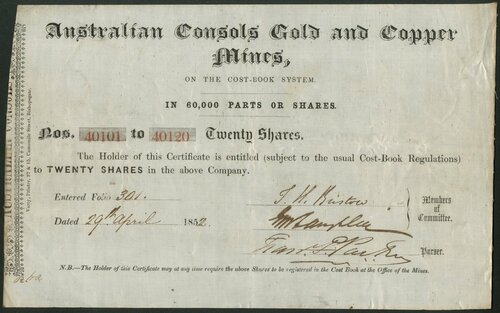 Australian Consols Gold and Copper
Mines,
ON THE COST-BOOK SYSTEM.
IN 60,000 PARTS OR SHARES.
Nos. 40101 to 40120 Twenty Shares.
The Holder of this Certificate is entitled (subject to the usual Cost-Book Regulations)
to TWENTY SHARES in the above Company.
Entered Folio 301.
Dated 29th April 1852
Members
of
Committee.
Purser.
N.B.—The Holder of this Certificate may at any time require the above Shares to be registered in the Cost Book at the Office of the Mines.
Australian Consols
Printer, Bishopsgate.